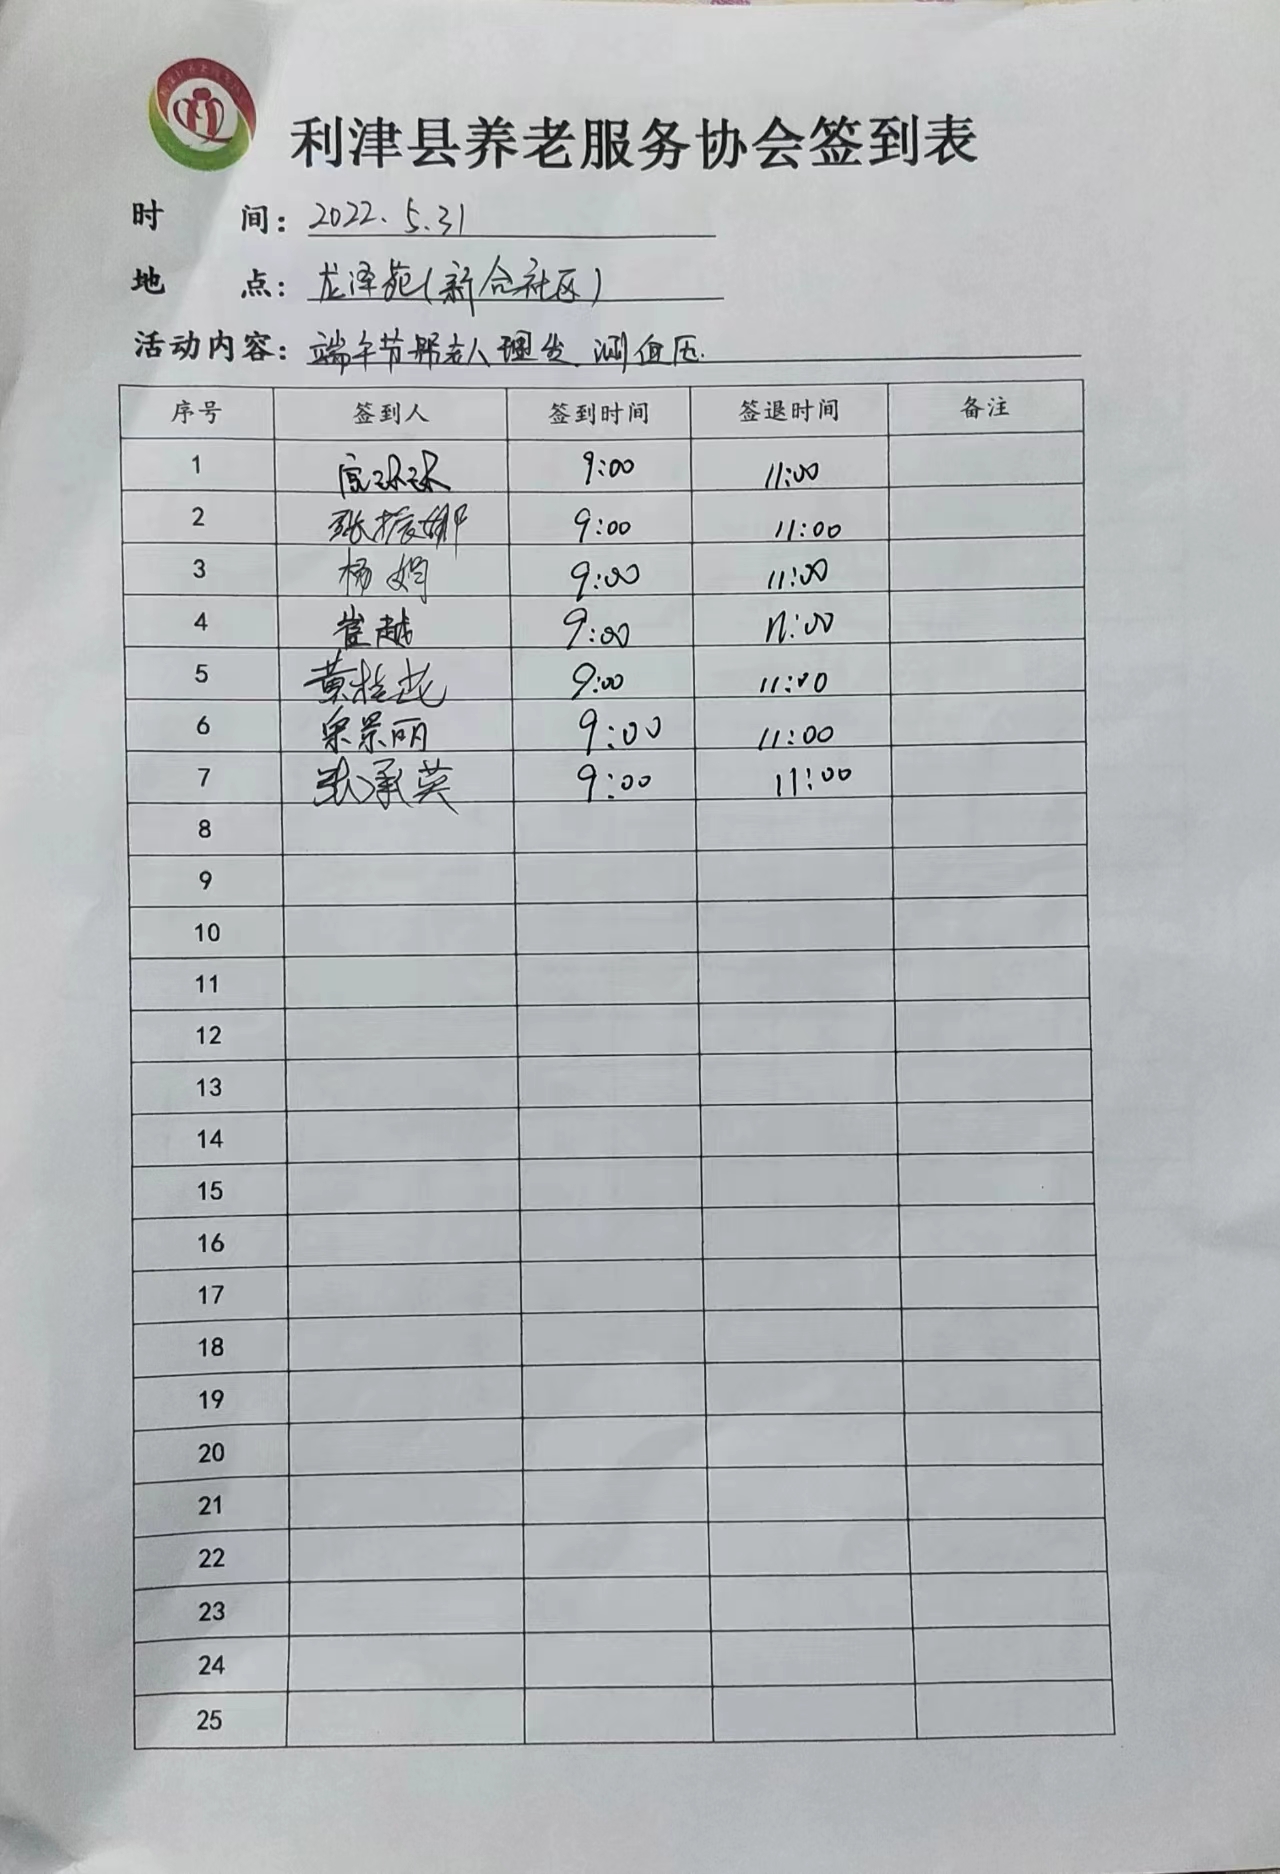 利津县养老服务协会签到表
时 间：2022.5.31
地 点：龙泽苑(新合社区)
活动内容：端午节帮老人理发 测血压.
序号 签到人 签到时间 签退时间 备注
1 9:00 11:00
2 张振娜 9:00 11:00
3 杨娟 9:00 11:00
4 崔越 9:00 11:00
5 黄桂花 9:00 11:00
6 景丽 9:00 11:00
7 张承英 9:00 11:00
8
9
10
11
12
13
14
15
16
17
18
19
20
21
22
23
24
25